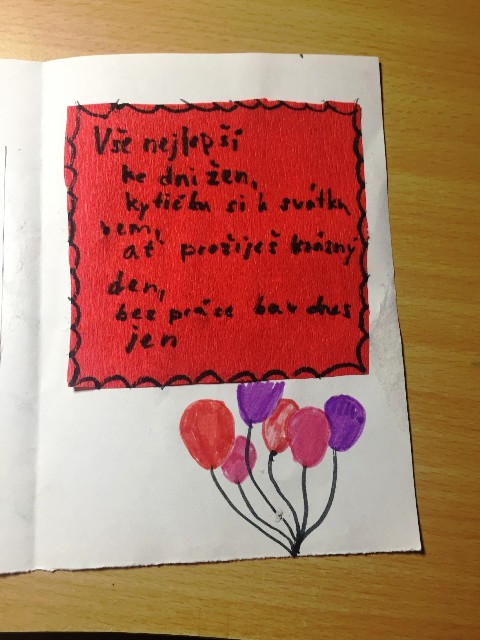 Vše nejlepší
ke dni žen,
kytičku si k svátku
vem,
ať prožiješ krásný
den,
bez práce bav dnes
jen